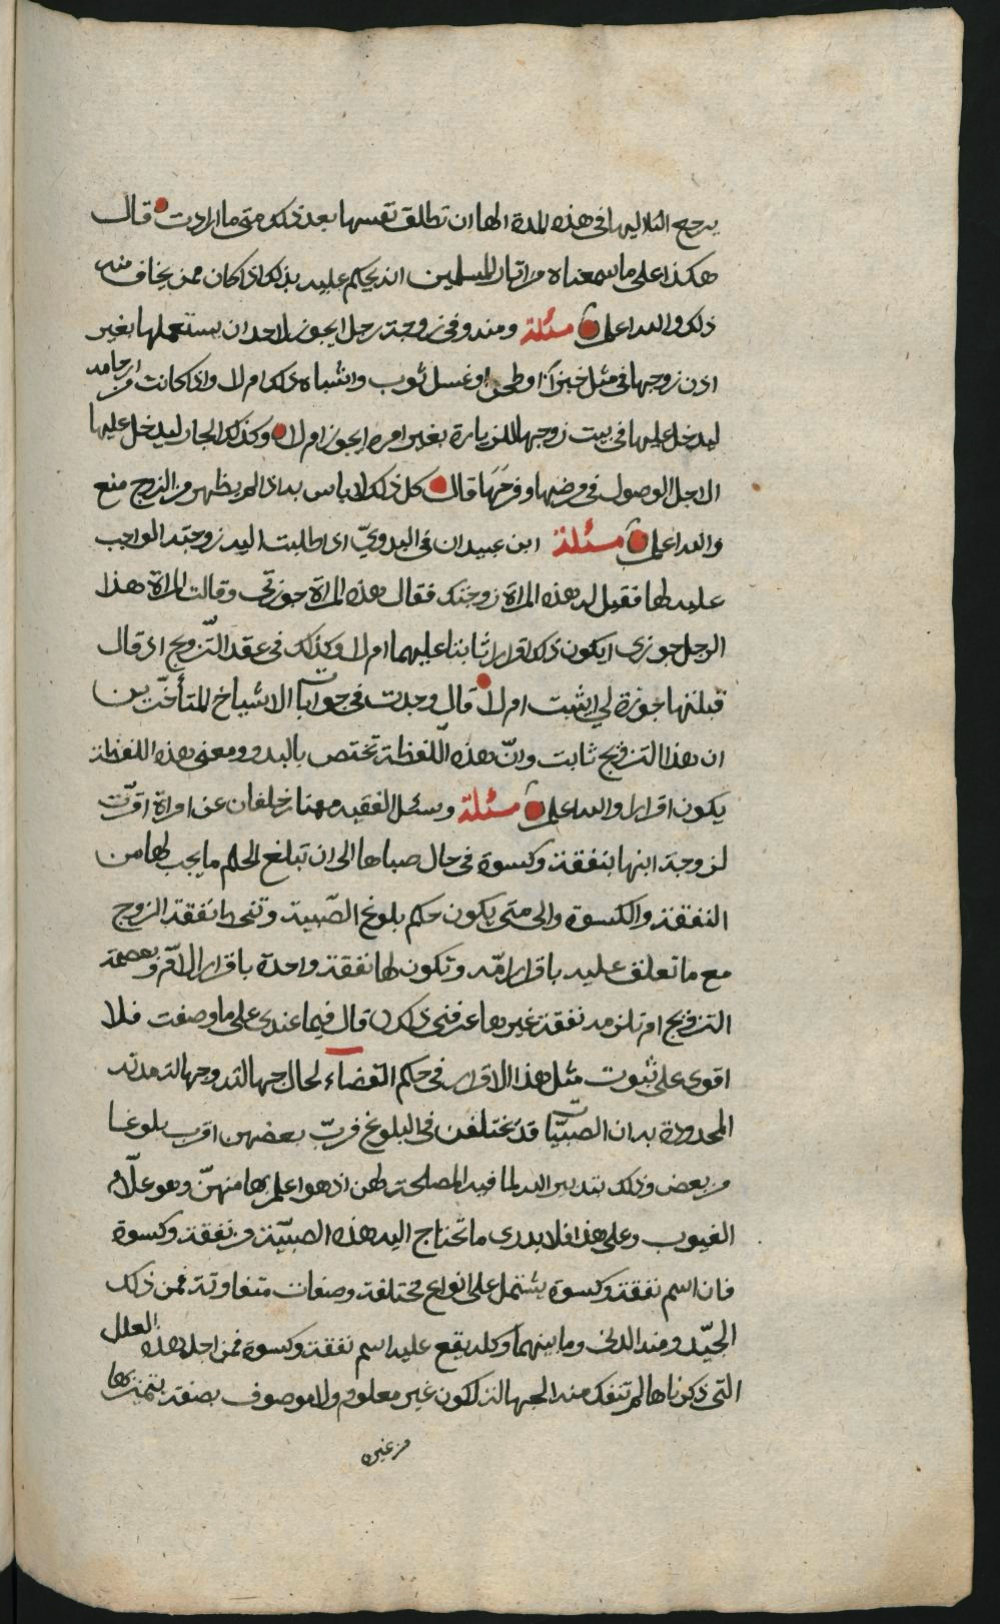 يرجع البلا اليها في هذه المدة الها ان تطلق نفسها بعد ذلك متى ما ارادت قال
هكذا على ما سمعناه من اثار المسلمين انه يحكم عليه بذلك اذا كان ممن يخاف منه
ذلك والله اعلم مسئلة ومنه وفي زوجة رجل ايجوز لاحد ان يستعملها بغير
اذن زوجها في مثل خبز او طحن او غسل ثوب واشباه ذلك ام لا واذا كانت من ارحامه
ليدخل عليها في بيت زوجها للزيارة بغير امره ايجوز ام لا وكذلك الجار ليدخل عليها
الاجل الوصول في مرضها وفرحها قال كل ذلك لا باس به اذا لم يظهر من الزوج منع
والله اعلم مسئلة ابن عبيدان في البدويّ اذا طلبت اليه زوجته الواجب
عليه لها فقيل له هذه المراة زوجتك فقال هذه المراة جوزتي وقالت المراة هذا
الرجل جوزي ايكون ذلك اقرارا ثابتا عليهما ام لا وكذلك في عقد التزويج اذا قال
قبلتها جوزة لي ايثبت ام لا قال وجدت في جوابات الاشياخ المتأخّرين
ان هذا التزويج ثابت وانّ هذه اللّفظة تختص بالبدو ومعنى هذه اللفظة
يكون اقرارا والله اعلم مسئلة وسئل الفقيه مهنا بن خلفان عن امراة اقرّت
لزوجة ابنها بنفقة وكسوة في حال صباها الى ان تبلغ الحلم ما يجب لها من
النفقة والكسوة والى متى يكون حكم بلوغ الصّبية وتنحط نفقة الزوج
مع ما تعلق عليه باقرار امّه وتكون لها نفقة واحدة باقرار الامّ وبعصمة
التزويج ام تلزمه نفقة غيرها عرفني ذلك قال فيما عندي على ما وصفت فلا
اقوى على ثبوت مثل هذا الاقرار في حكم القضاء لحال جهالته وجهالة مدته
المحدودة به ان الصبيّات قد تختلفن في البلوغ فربّ بعضهن اقرب بلوغا
من بعض وذلك بتدبير الله لما فيه المصلحة لهن اذ هو اعلم بها منهنّ وهو علّام
الغيوب وعلى هذا فلا يدرى ما تحتاج اليه هذه الصبيّة من نفقة وكسوة
فان اسم نفقة وكسوة يشتمل على انواع مختلفة وصفات متفاوتة فمن ذلك
الجيّد ومنه الدني وما بينهما وكله يقع عليه اسم نفقة وكسوة فمن اجل هذه العلل
التي ذكرناها لم تنفك منه الجهالة لكون غير معلوم ولا موصوف بصفة بتميزها
من غيره